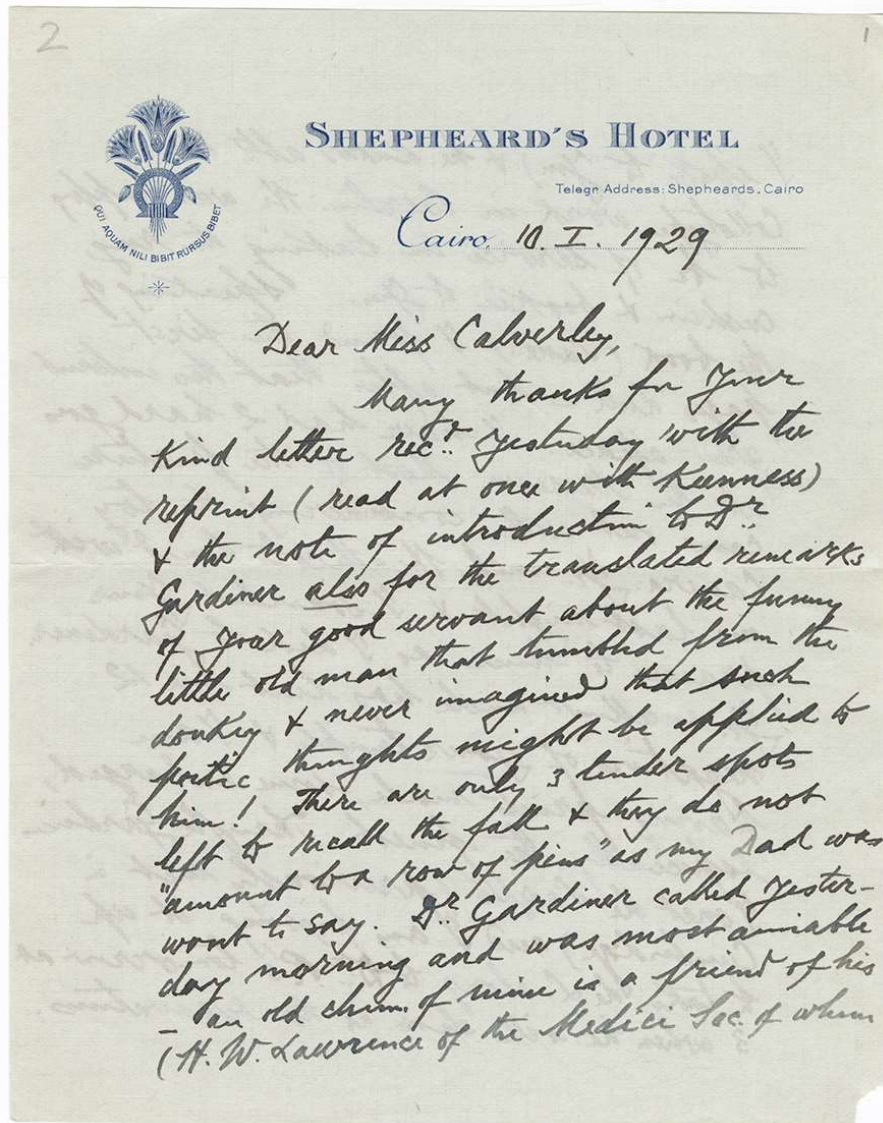 2
1
SHEPHEARD'S HOTEL
Telegr Address: Shepheards, Cairo
QUI AQUAM NILI BIBIT RURSUS BIBET
Cairo, 10. I. 1929
Dear Miss Calverley,
Many thanks for your
kind letter rec.d yesterday with the
reprint (read at once with keenness)
& the note of introduction to Dr.
Gardiner also for the translated remarks
of your good servant about the funny
little old man that tumbled from the
donkey & never imagined that such
poetic thoughts might be applied to
him! There are only 3 tender spots
left to recall the fall & they do not
"amount to a row of pins" as my Dad was
wont to say. Dr. Gardiner called yester-
day morning and was most amiable
- an old chum of mine is a friend of his
(H. W. Lawrence of the Medici Soc. of whom